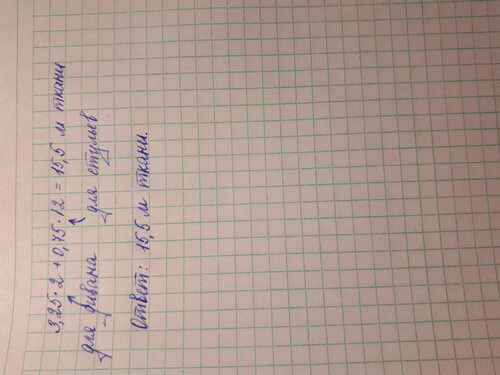 3,25·2+0,75·12=15,5 м ткани
для дивана для стульев
Ответ: 15,5 м ткани.